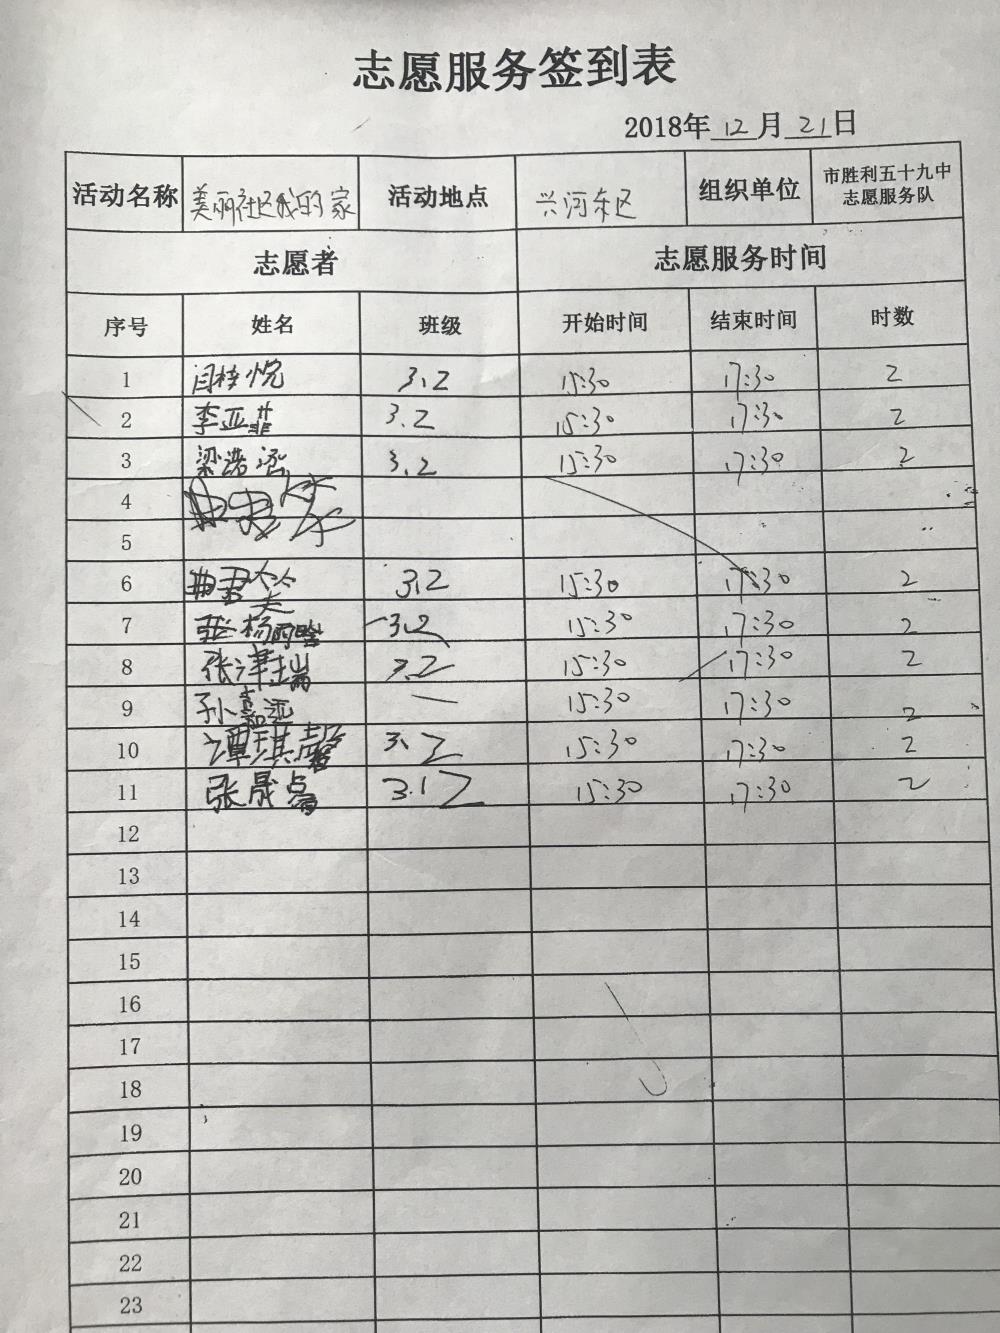 志愿服务签到表
2018年12月21日
活动名称 美丽社区我的家 活动地点 兴河东区 组织单位 市胜利五十九中
志愿服务队
志愿者 志愿服务时间
序号 姓名 班级 开始时间 结束时间 时数
1 闫梓悦 3.2 15:30 17:30 2
2 李亚菲 3.2 15:30 17:30 2
3 梁诺泓 3.2 15:30 17:30 2
4
5
6 3.2 15:30 17:30 2
7 张杨 3.2 15:30 17:30 2
8 张津瑞 3.2 15:30 17:30 2
9 孙嘉 一 15:30 17:30 2
10 谭琪 3.2 15:30 17:30 2
11 张晟 3.12 15:30 17:30 2
12
13
14
15
16
17
18
19
20
21
22
23